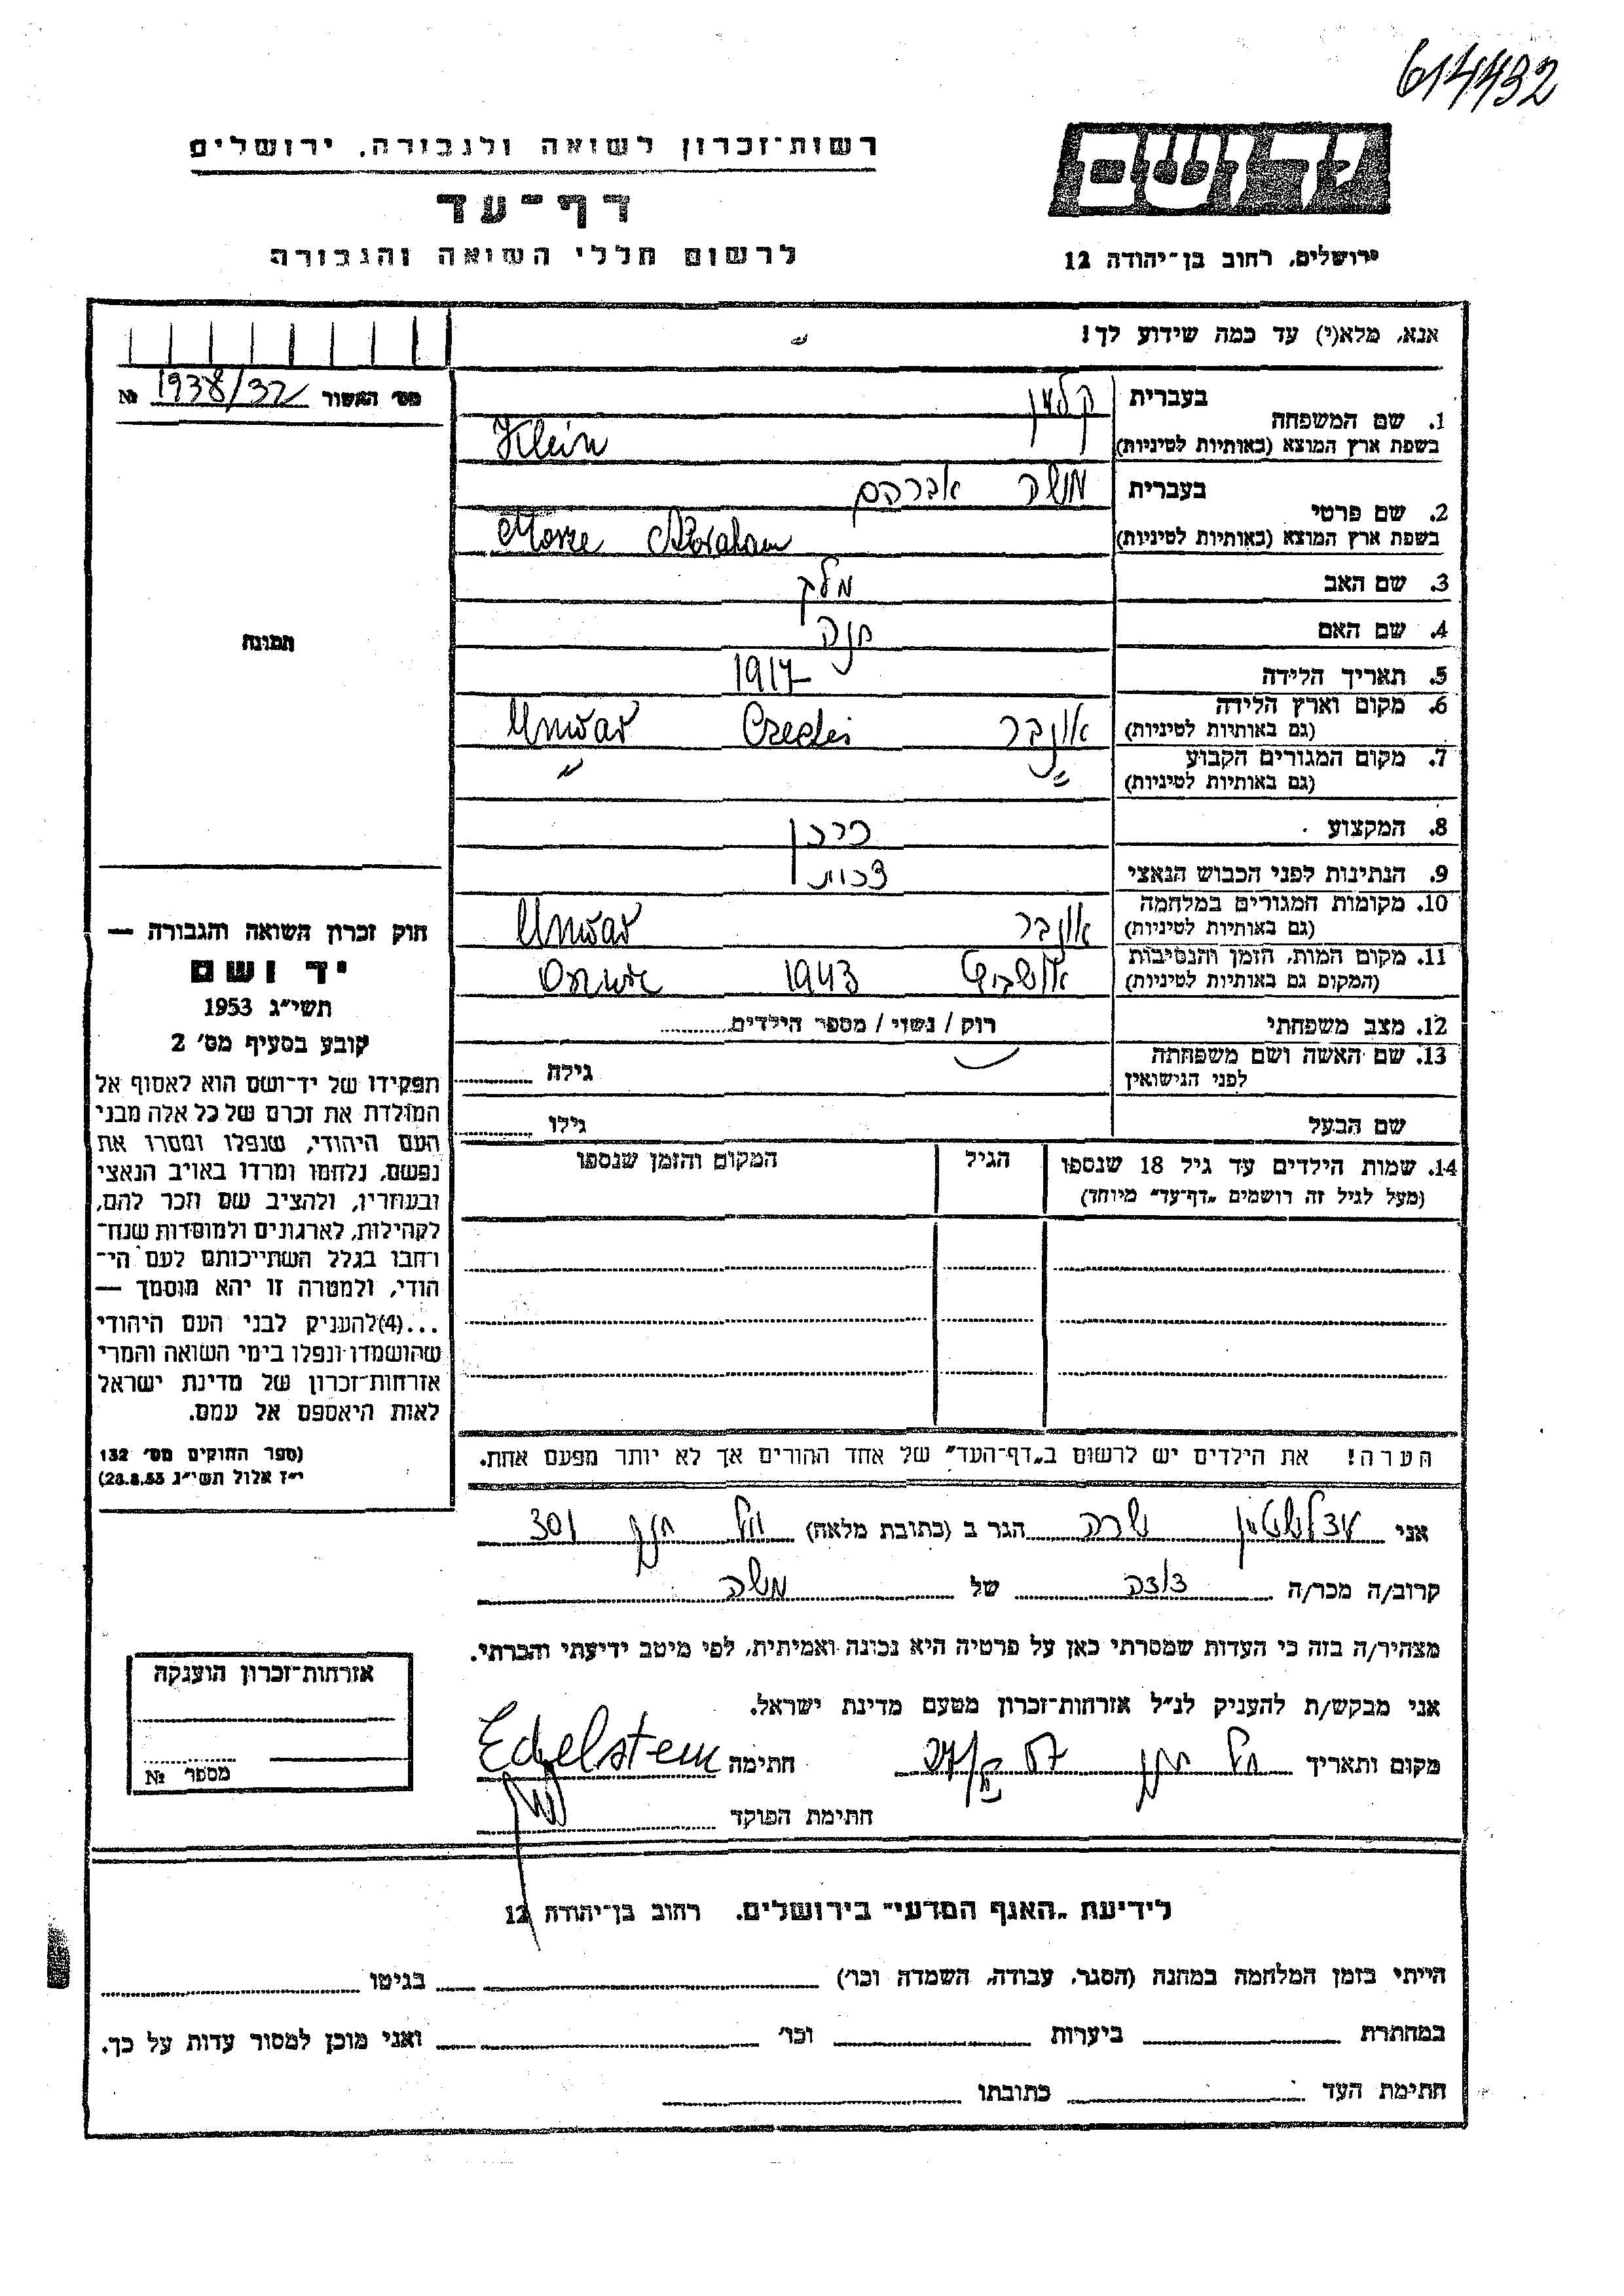 614432
יד ושם
ירושלים, רחוב בן־יהודה 12
רשות־זכרון לשואה ולגבורה, ירושלים
דף־עד
לרשום חללי השואה והגבורה
אנא, מלא(י) עד כמה שידוע לך!
מס' האשור 1938/32 №
1. שם המשפחה
בעברית קליין
בשפת ארץ המוצא (באותיות לטיניות) Klein
2. שם פרטי
בעברית משה אברהם
בשפת ארץ המוצא (באותיות לטיניות) Abraham
3. שם האב מלך
4. שם האם חנה
5. תאריך הלידה 1917
6. מקום וארץ הלידה אונגבר Ungvar
(גם באותיות לטיניות)
7. מקום המגורים הקבוע " "
(גם באותיות לטיניות)
8. המקצוע
9. הנתינות לפני הכבוש הנאצי
10. מקומות המגורים במלחמה אונגבר Ungvar
(גם באותיות לטיניות)
11. מקום המות, הזמן והנסיבות אושביץ 1943
(המקום גם באותיות לטיניות)
12. מצב משפחתי רוק / נשוי / מספר הילדים
13. שם האשה ושם משפחתה
לפני הנישואין גילה
שם הבעל גילו
14. שמות הילדים עד גיל 18 שנספו הגיל המקום והזמן שנספו
(מעל לגיל זה רושמים „דף־עד" מיוחד)
הערה! את הילדים יש לרשום ב„דף־העד" של אחד ההורים אך לא יותר מפעם אחת.
תמונה
חוק זכרון השואה והגבורה —
יד ושם
תשי"ג 1953
קובע בסעיף מס' 2
תפקידו של יד־ושם הוא לאסוף אל
המולדת את זכרם של כל אלה מבני
העם היהודי, שנפלו ומסרו את
נפשם, נלחמו ומרדו באויב הנאצי
ובעוזריו, ולהציב שם וזכר להם,
לקהילות, לארגונים ולמוסדות שנח־
רחבו בגלל השתייכותם לעם הי־
הודי, ולמטרה זו יהא מוסמך —
...(4)להעניק לבני העם היהודי
שהושמדו ונפלו בימי השואה והמרי
אזרחות־זכרון של מדינת ישראל
לאות היאספם אל עמם.
(ספר החוקים מס' 132
י"ז אלול תשי"ג 28.8.53)
אני עדלשטיין שרה הגר ב (כתובת מלאה) תל חנן 301
קרוב/ה מכר/ה דודה של משה
מצהיר/ה בזה כי העדות שמסרתי כאן על פרטיה היא נכונה ואמיתית, לפי מיטב ידיעתי והכרתי.
אני מבקש/ת להעניק לנ"ל אזרחות־זכרון מטעם מדינת ישראל.
מקום ותאריך תל חנן חתימה Edelstein
חתימת הפוקד
אזרחות־זכרון הוענקה
מספר №
לידיעת „האגף המדעי" בירושלים, רחוב בן־יהודה 12
הייתי בזמן המלחמה במחנה (הסגר, עבודה, השמדה וכו') בגיטו
במחתרת ביערות וכו' ואני מוכן למסור עדות על כך.
חתימת העד כתובתו